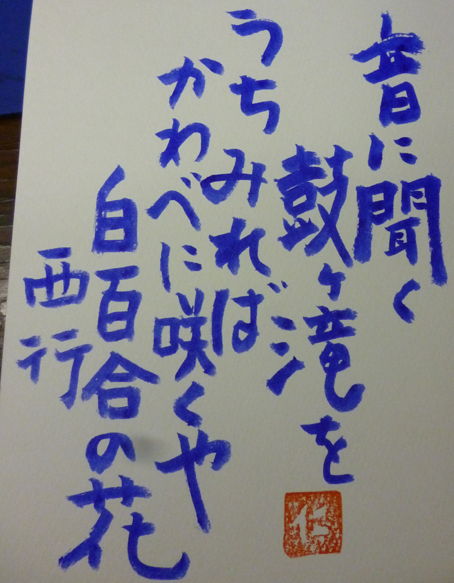 音に聞く
鼓ヶ滝を
うちみれば
かわべに咲くや
白百合の花
西行
仁